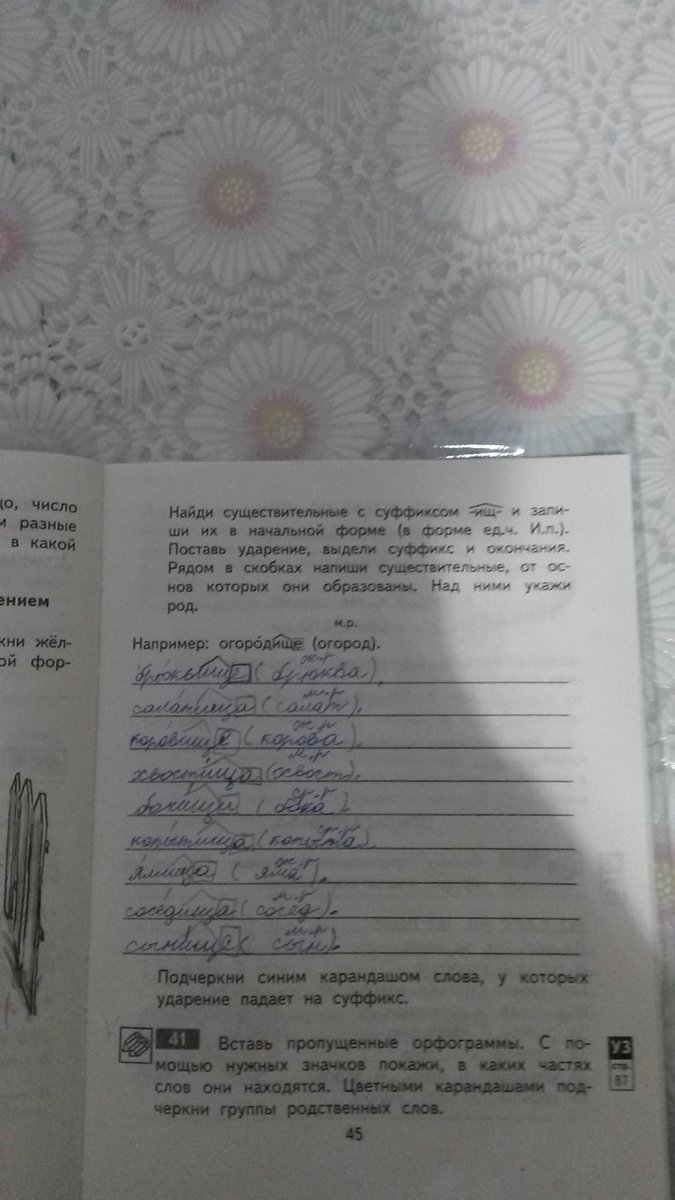 цо, число
м разные
в какой
ением
кни жёл-
ой фор-
Найди существительные с суффиксом -ищ- и запи-
ши их в начальной форме (в форме ед.ч. И.п.).
Поставь ударение, выдели суффикс и окончания.
Рядом в скобках напиши существительные, от ос-
нов которых они образованы. Над ними укажи
род.
м.р.
Например: огоро́дище (огород).
ж.р
брюквище (брюква).
м.р
сала́тища (салат).
ж.р
коро́вище (корова).
м.р
хвости́ща (хвост).
(бока).
копы́тища (копыта).
ж.р
я́мища (яма).
м.р
сосе́дища (сосед).
м.р
сынище (сын).
Подчеркни синим карандашом слова, у которых
ударение падает на суффикс.
41 Вставь пропущенные орфограммы. С по-
мощью нужных значков покажи, в каких частях
слов они находятся. Цветными карандашами под-
черкни группы родственных слов.
УЗ
стр.
87
45